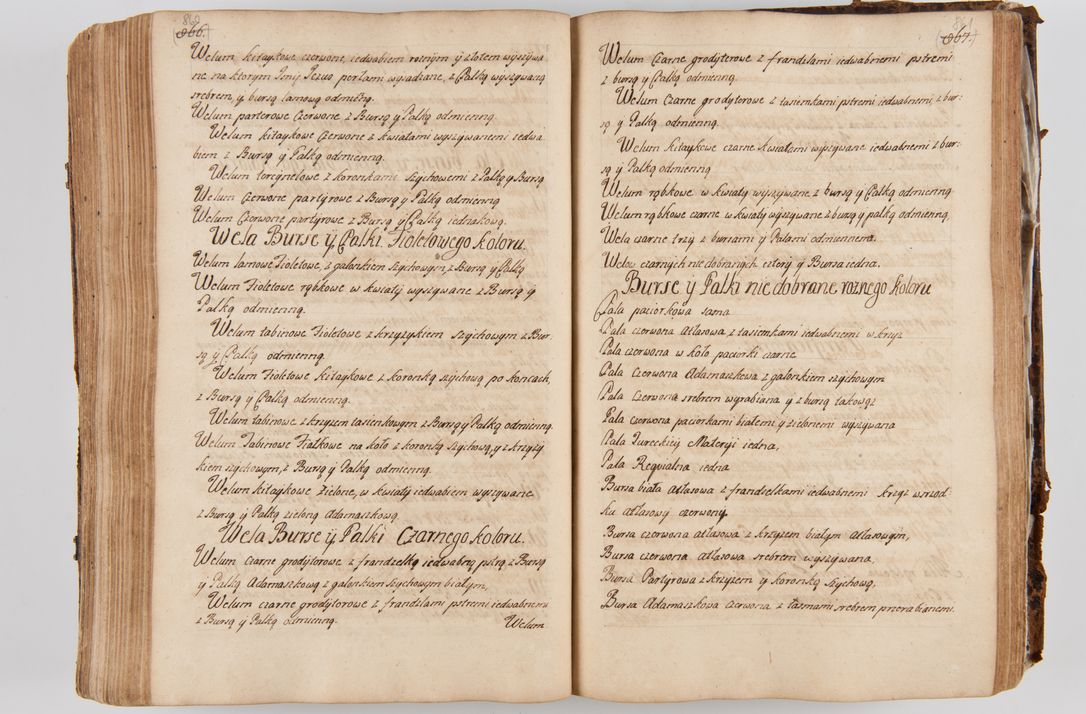 860
(866.)
Welum kitaykowe czerwone iedwabiem roznym y złotem wyszywa
ne na ktorym Jmij Jezus perłami wysadzane, z Palką wyszywaną
srebrem, y bursą lamową odmięną.
Welum parterowe Czerwone z Bursą y Palką odmienną.
Welum kitaykowe Czerwone z kwiatami wyszywanemi iedwa
biem z Bursą y Palką odmienną.
Welum toregnelowe z koronkami szychowemi z Palką y Bursą
Welum Czerwone partyrowe z Bursą y Palką odmienną
Welum Czerwone partyrowe z Bursą y Palką iednakową.
Wela Burse ÿ Palki Fioletowego koloru.
Welum lamowe Fioletowe, z galonkiem szychowym, z Bursą y Palką
Welum Fioletowe rąbkowe w kwiaty wyszywane z Bursą y
Palką odmienną.
Welum tabinowe Fioletowe z krzyzykiem szychowym z Bur
są y Palką odmienną.
Welum Fioletowe kitaykowe z koronką szychową po koncach,
z Bursą y Palką odmienną.
Welum tabinowe z krzyzem tasienkowym z Bursą y Palką odmienną.
Welum Tabinowe Fiałkowe na koło z koronką szychową, y z krzyzy
kiem szychowym, z Bursą y Palką odmienną.
Welum kitaykowe Zielone, w kwiaty iedwabiem wyszywane
z Bursą y Palką zieloną Adamaszkową.
Wela Burse ÿ Palki Czarnego koloru.
Welum Czarne grodytorowe z frandzelką iedwabną pstrą z Bursą
y Palką Adamaszkową z galonkiem szychowym białym,
Welum czarne grodytorowe z frandzlami pstremi iedwabnemi
z Bursą y Palką odmienną.
Welum
861
(867.)
Welum Czarne grodyterowe z frandzlami iedwabnemi pstremi
z bursą y Palką odmienną.
Welum Czarne grodytorowe z tasiemkami pstremi iedwabnemi, z bur:
są y Palką odmienną.
Welum kitaykowe czarne kwiatami wyszywane iedwabnemi z bur:
są y Palką odmienną
Welum rąbkowe w kwiaty wyszywane z bursą y Palką odmienną
Welum rąbkowe czarne w kwiaty wyszywane z bursą y palką odmienną.
Wela czarne trzy z bursami y Palami odmiennemi.
Welow czarnych nie dobranych cztery y Bursa iedna.
Burse y Palki nie dobrane roznego koloru
Pala paciorkowa sama
Pala czerwona atłasowa z tasiemkami iedwabnemi w krzyz
Pala czerwona w koło paciorki czarne
Pala Czerwona Adamaszkowa z galonkiem szychowym
Pala Czerwona srebrem wyrabiana y z bursą takowąz
Pala czerwona paciorkami białemi y zielonemi wyszywana
Pala Tureckiey Materyi iedna,
Pala Requialna iedna
Bursa biała atłasowa z frandzelkami iedwabnemi krzyz wsrzod
ku atłasowy czerwony.
Bursa czerwona atłasowa z krzyzem białym atłasowym,
Bursa czerwona atłasowa srebrem wyszywana,
Bursa Partyrowa z krzyzem y koronką szychową,
Bursa Adamaszkowa czerwona z tasmami srebrem przerabianemi.